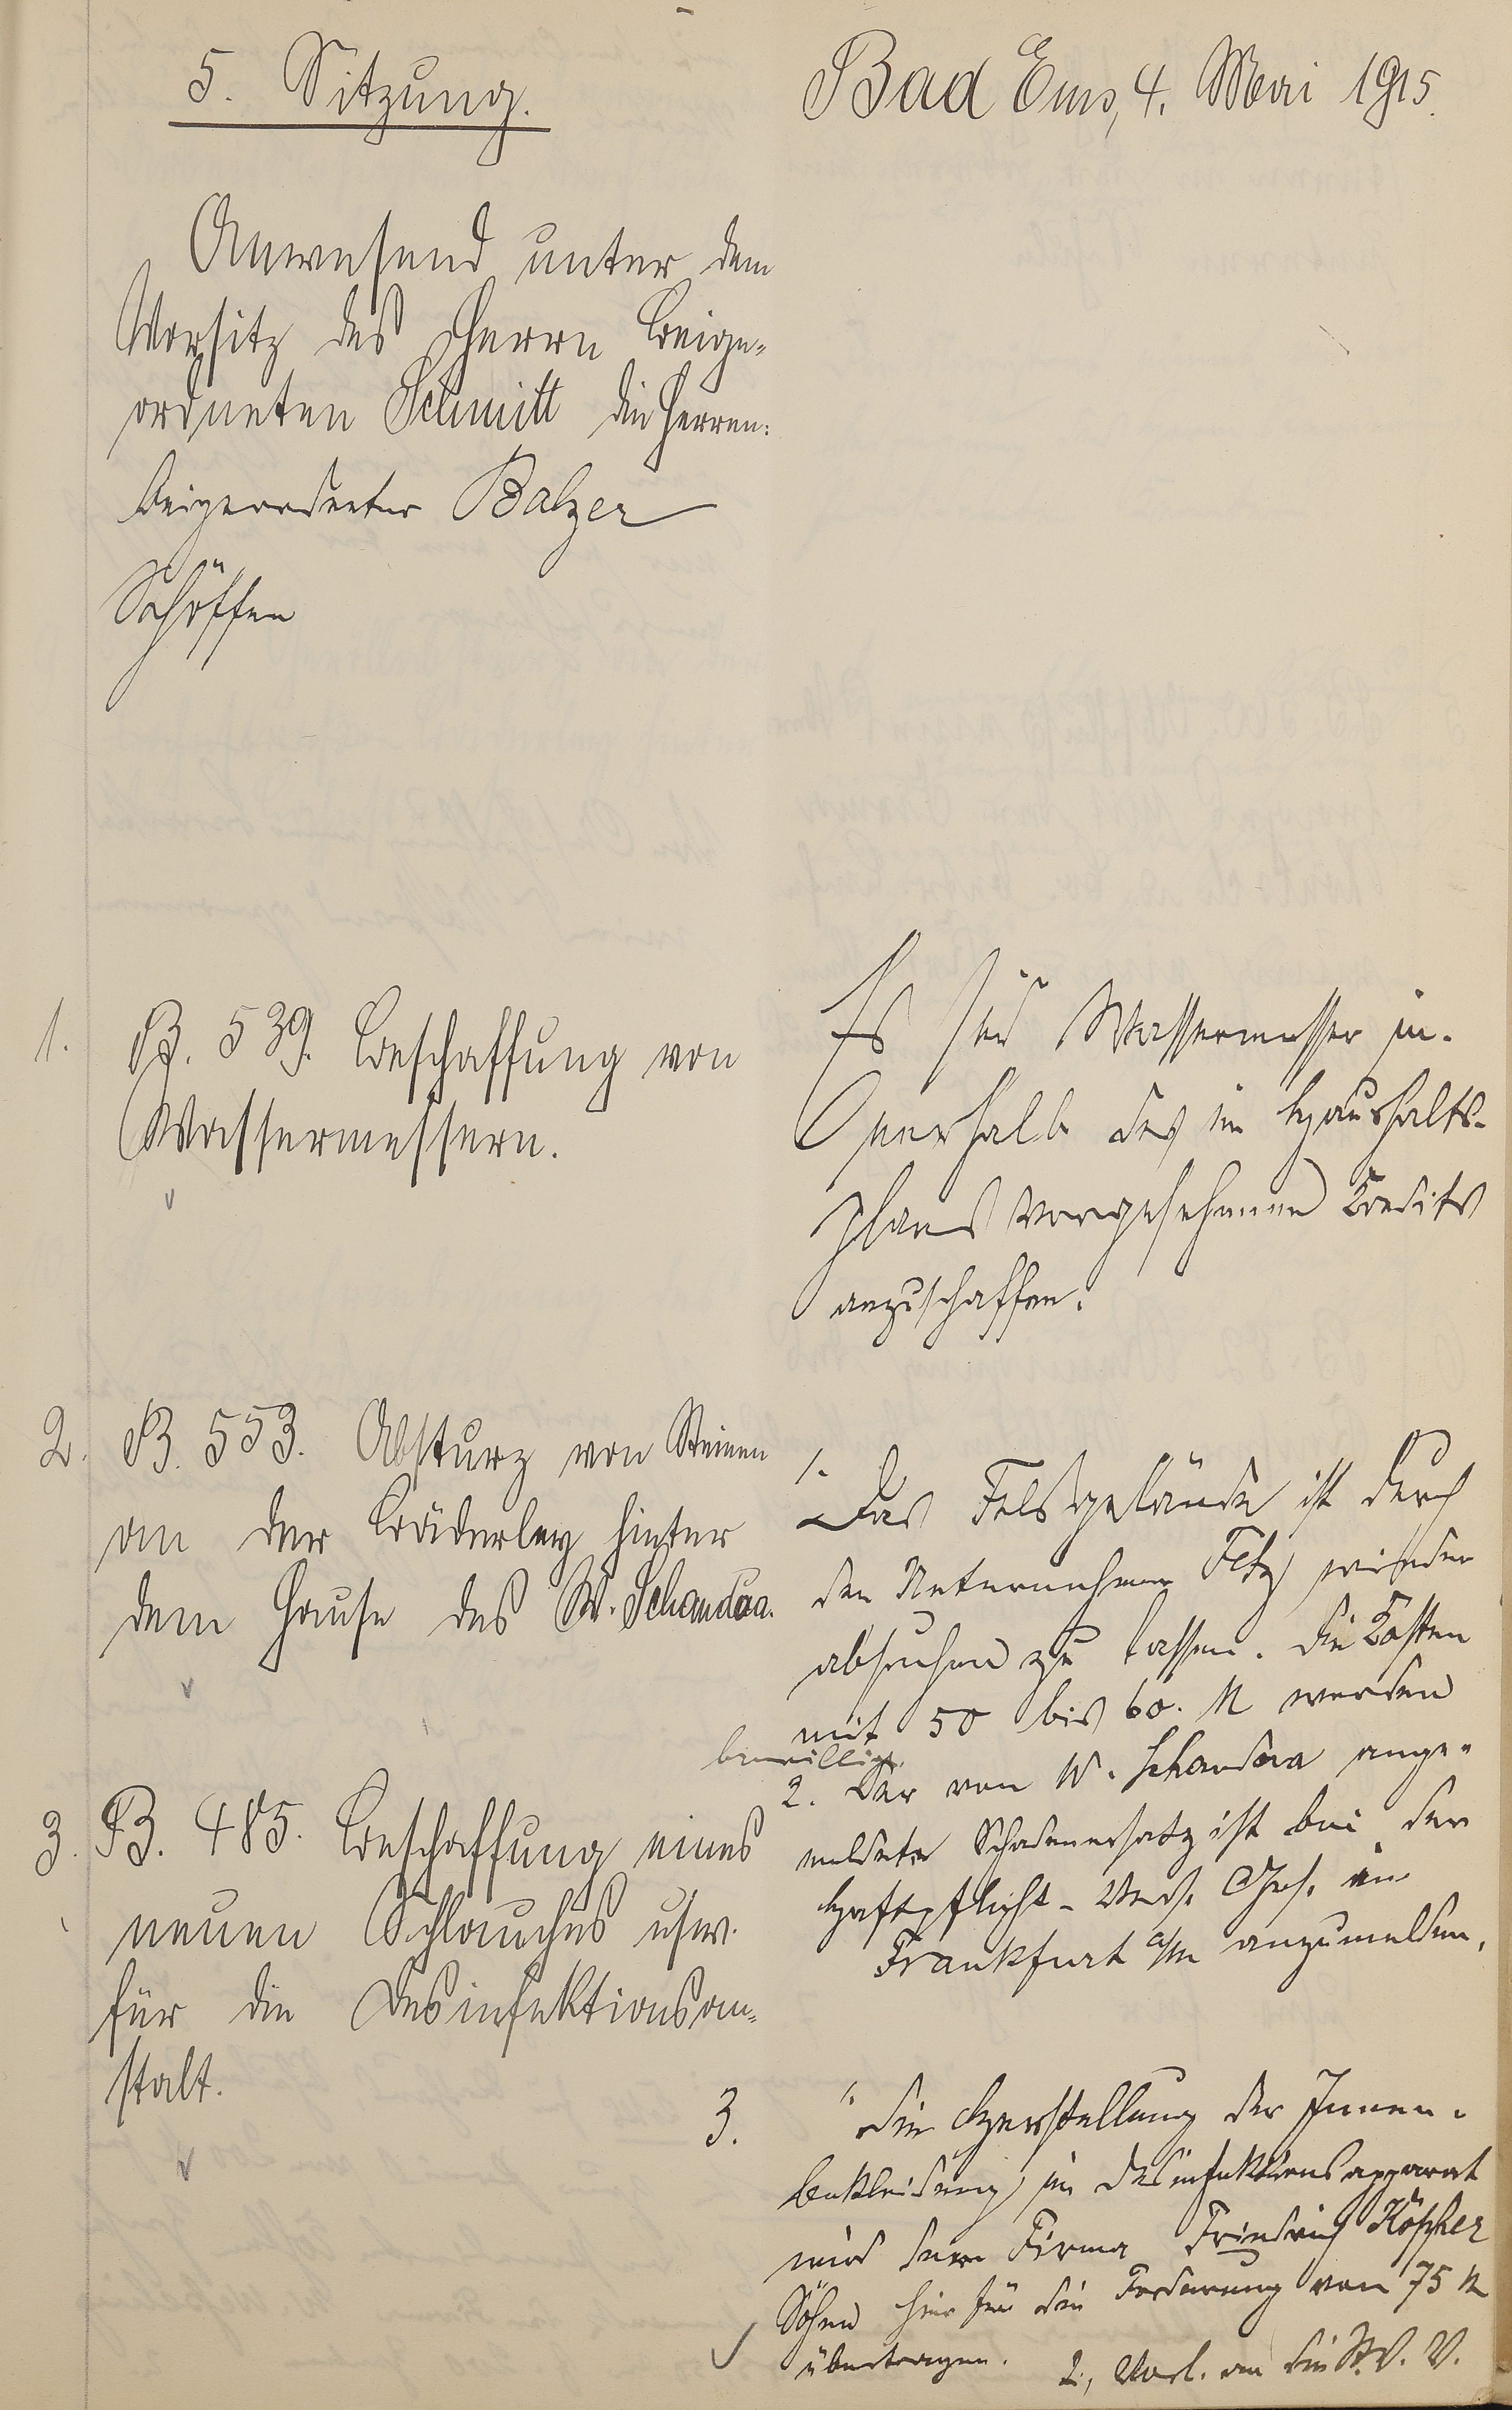 5. Sitzung.
Bad Ems, 4. Mai 1915.
Anwesend unter dem
Vorsitz des Herrn Beige-
ordneten Schmitt die Herren:
Beigeordneter Balzer
Schöffen
1. B. 539. Beschaffung von
Wassermessern.
Es sind Wassermesser in-
nerhalb des im Haushalts-
plans vorgesehenen Kredits
anzuschaffen.
2. B. 553. Absturz von Steinen
an der Bäderley hinter
dem Hause des W. Schandua.
1. Das Felsgelände ist durch
den Unternehmer wieder
absuchen zu lassen. Die Kosten
mit 50 bis 60. M werden
bewilligt.
2. Der von W. Schandua ange-
meldete Schadenersatz ist bei der
Haftpflicht-Vers. Ges. in
Frankfurt a/M anzumelden.
3. B. 485. Beschaffung eines
neuen Schlauches usw.
für die Desinfektionsan-
stalt.
3. Die Herstellung der Innen-
bekleidung im Desinfektionsapparat
wird der Firma Friedrich
Söhne hier für die Forderung von 75 M
übertragen. 2, Vorl. an die St. V. V.